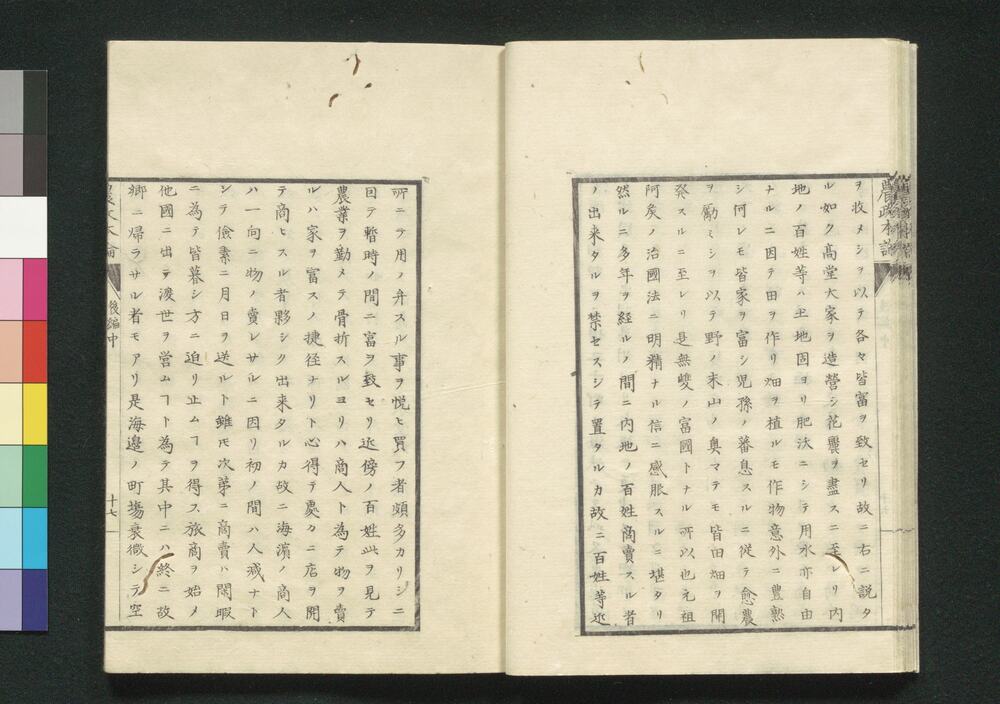 農政本論
ヲ收メシヲ以テ各々皆富ヲ致セリ故ニ右ニ説タ
ル如ク髙堂大家ヲ造營シ花麗ヲ盡スニ至レリ内
地ノ百姓等ハ土地固ヨリ肥沃ニシテ用水亦自由
ナルニ因テ田ヲ作リ畑ヲ植ルモ作物意外ニ豊熟
シ何レモ皆家ヲ富シ児孫ノ蕃息スルニ従テ愈農
ヲ勵ミシヲ以テ野ノ末山ノ奥マテモ皆田畑ヲ開
発スルニ至レリ是無雙ノ富國トナル所以也元祖
阿矦ノ治國法ニ明精ナル信ニ感服スルニ堪タリ
然ルニ多年ヲ経ルノ間ニ内地ノ百姓商賣スル者
ノ出来タルヲ禁セスシテ置タルカ故ニ百姓等近
所ニテ用ノ弁スル事ヲ悦ヒ買フ者頗多カリシニ
因テ暫時ノ間ニ富ヲ致セリ近傍ノ百姓此ヲ見テ
農業ヲ勤メテ骨折スルヨリハ商人ト為テ物ヲ賣
ルハ家ヲ富スノ捷径ナリト心得テ處々ニ店ヲ開
テ商ヒスル者夥シク出来タルカ故ニ海濱ノ商人
ハ一向ニ物ノ賣レサルニ因リ初ノ間ハ人减ナト
シテ儉素ニ月日ヲ送ルト雖モ次第ニ商賣ハ閑暇
ニ為テ皆暮シ方ニ迫リ止ムヿヲ得ス旅商ヲ始メ
他國ニ出テ渡世ヲ営ムヿト為テ其中ニハ終ニ故
郷ニ帰ラサル者モアリ是海邉ノ町場衰微シテ空
後編中
十七